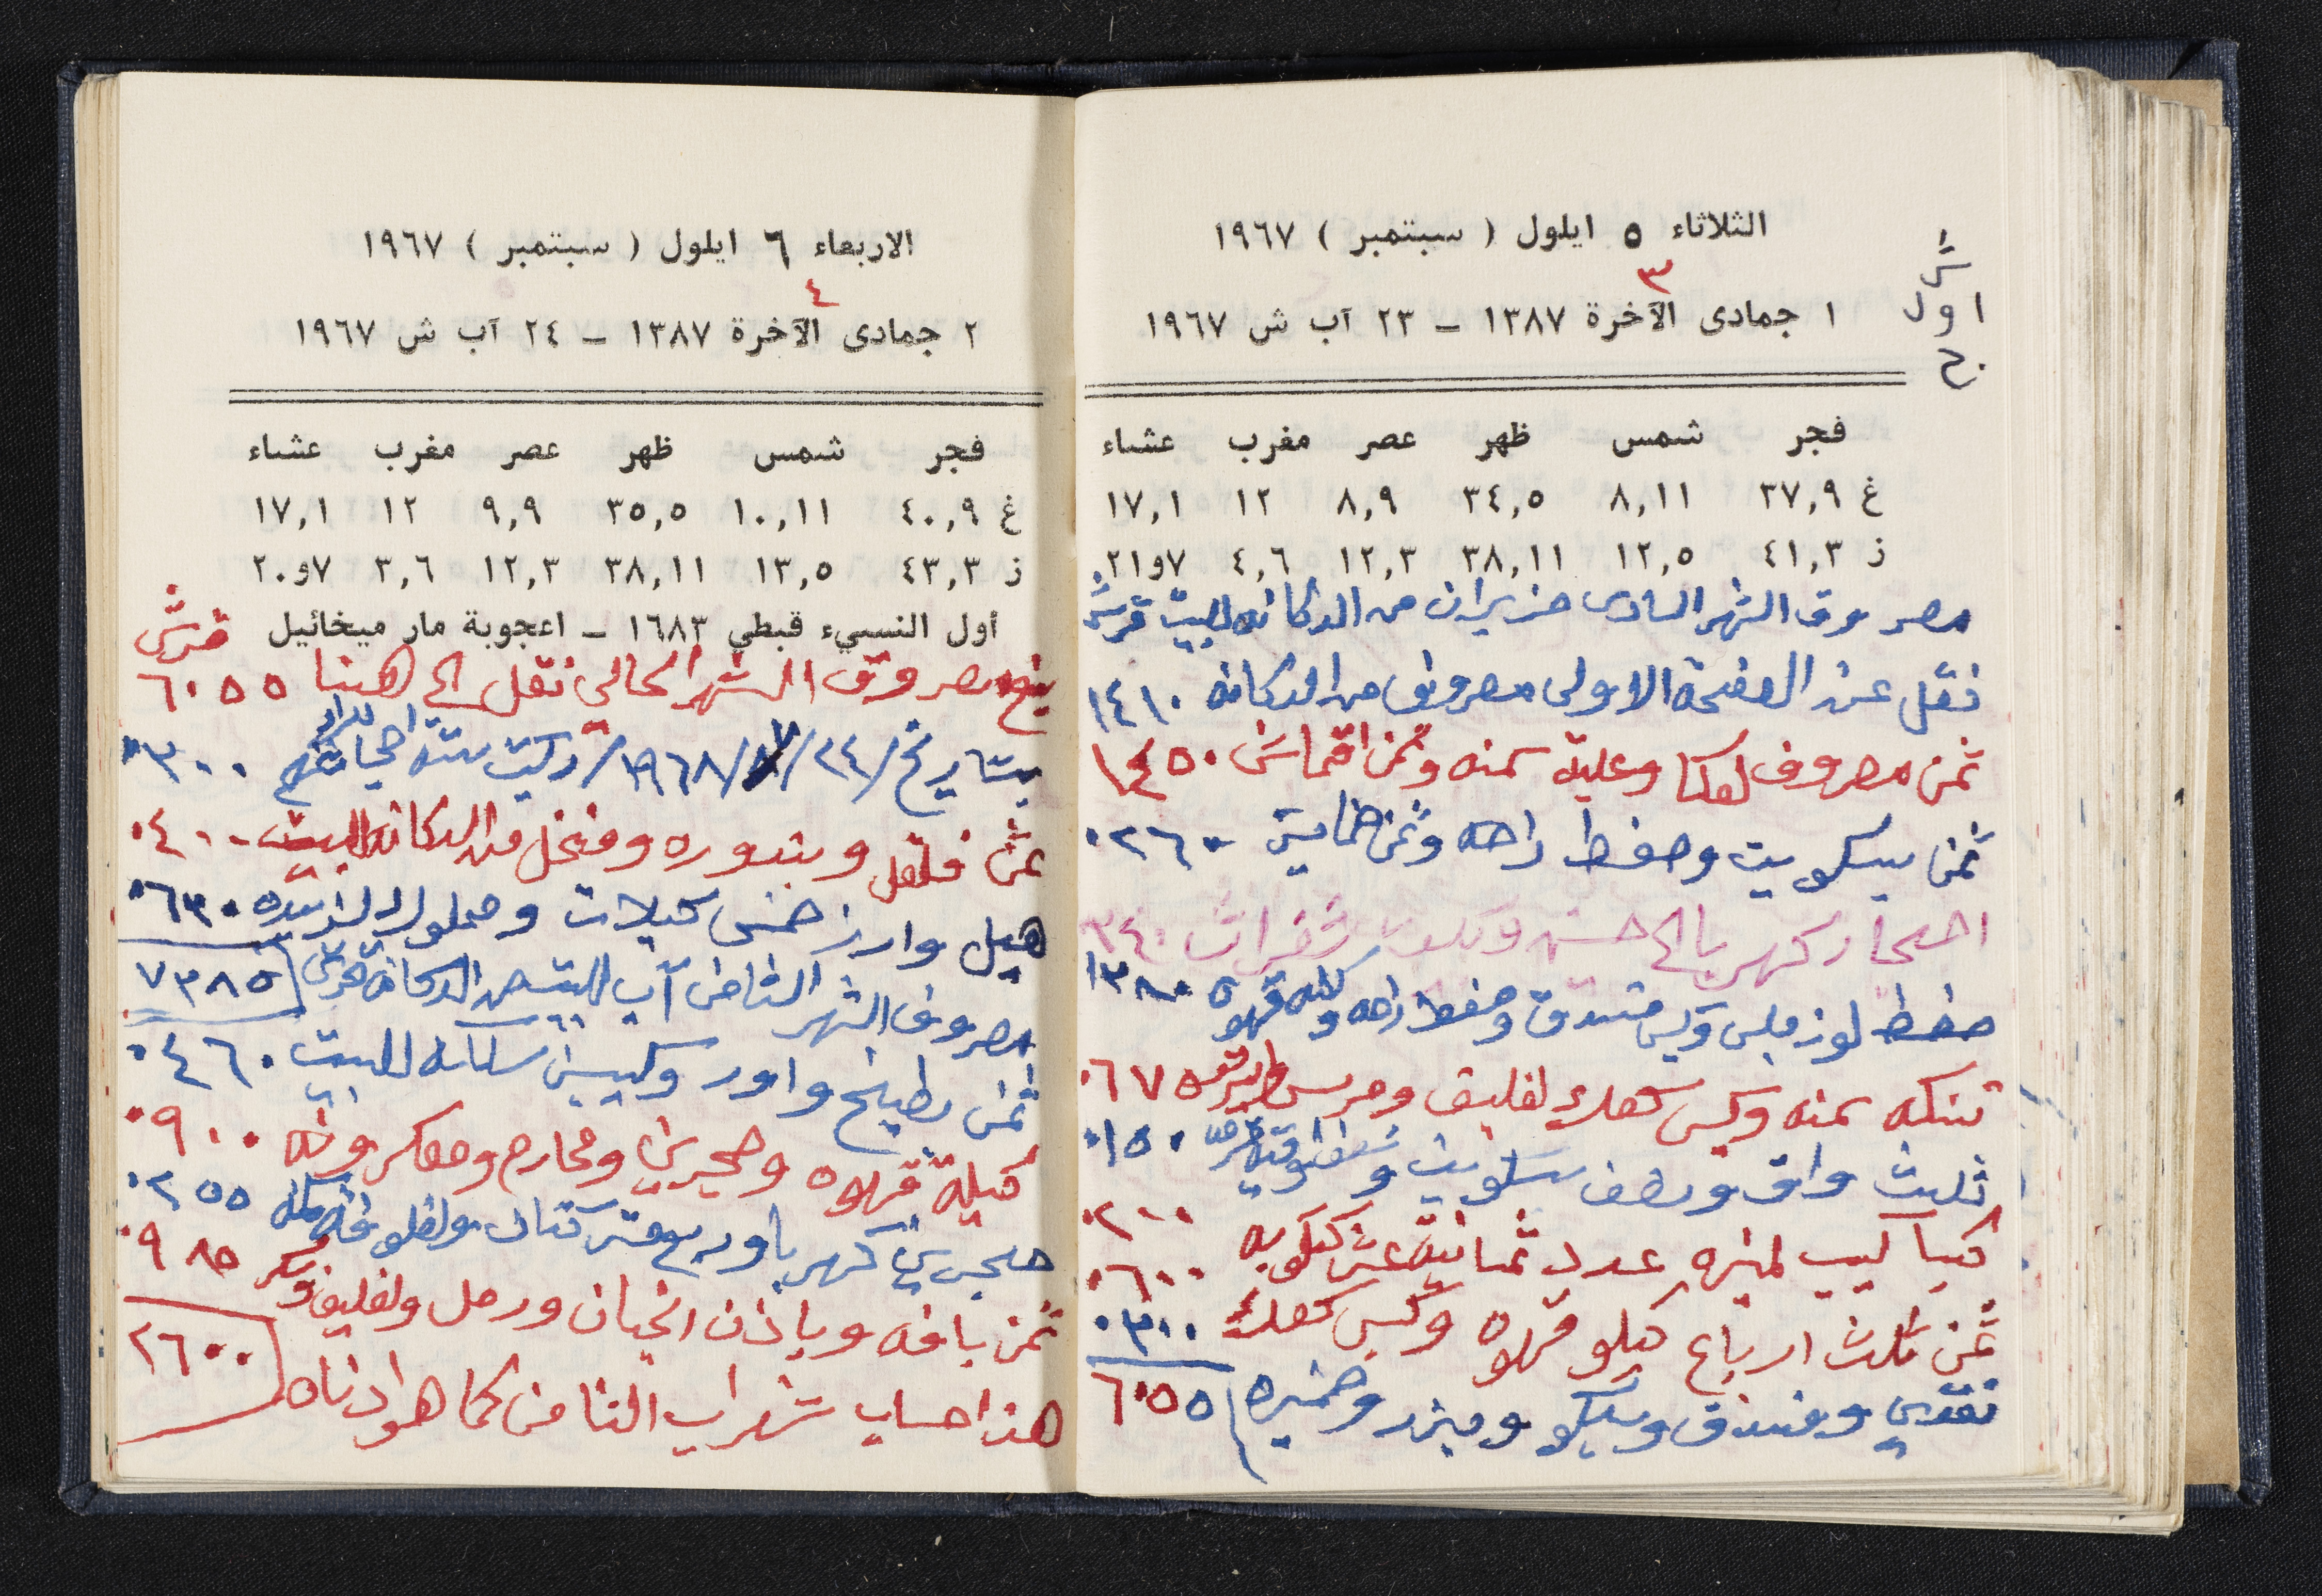 الثلاثاء ٥ ايلول ( سبتمبر ) ١٩٦٧
٣
١ جمادى الآخرة ١٣٨٧ – ٢٣ آب ش ١٩٦٧
اول
فجر شمس ظهر عصر مغرب عشاء
غ ٣٧,٩ ٨,١١ ٣٤,٥ ٨,٩ ١٢ ١٧,١
ز ٤١,٣ ١٢,٥ ٣٨,١١ ١٢,٣ ٤,٦ ٧و٢١
مصروف الشهر السادس حزيران من الدكانه للبيت قرش
نقل عن الصفحة الاولى مصروف من الدكانه ١٤١٠
ثمن مصروف لعكا وعلبة سمنه وثمن اقماش ١٤٥٠
ثمن بيسكويت وصفط راحه وثمن ٠٢٦٠
احجار كهربا الى حسن ٠٣٤٠
صفط لوز ملبس وكيس فستدق وصفط راحه وكيله قهوه ١٣٨٠
تنكه سمنه وكيس كعك لفليف ومرس ٠٦٧٥
ثلث واق ونصف بسكويت ٠١٥٠
كيب لميزه عدد ثمانية عشر ٠٢٠٠
ثمن ثلث ارباع كيلو قهوه وكيس كعك ٠٦٠٠
٠٣٠٠
نقدي وفندق وبيكو وبزر وخميره ٦٠٥٥
الاربعاء ٦ ايلول ( سبتمبر ) ١٩٦٧
٤
٢ جمادى الآخرة ١٣٨٧ – ٢٤ آب ش ١٩٦٧
فجر شمس ظهر عصر مغرب عشاء
غ ٤٠,٩ ١٠,١١ ٣٥,٥ ٩,٩ ١٢ ١٧,١
ز ٤٣,٣ ١٣,٥ ٣٨,١١ ١٢,٣ ٣,٦ ٧و٢٠
أول النسيء قبطي ١٦٨٣ – اعجوبة مار ميخائيل
قرش
مصروف الشهر الحالي نقل الى هنا ٦٠٥٥
بتاريخ /٢٤/٧/١٩٦٨/ ستة ٠٣٠٠
ثمن فلفل وبندوره ومنخل من الدكانه للبيت ٠٤٠٠
هيل وارز خمس كيلات ٠٦٣٠
مصروف الشهر الثامن آب للبيت من الدكانة قرش ٧٣٨٥
ثمن بطيخ واور وكيس للبيت ٠٤٦٠
كيلة قهوه وحجرين ومحارم ومعكرونه ٠٩٠٠
حجرين كهربا وربع متر كتان ٠٢٥٥
ثمن بافه وباذنجان ورمل ولفليف ٠٩٨٥
هذا حساب شهر آب الثامن كما هو ادناه ٢٦٠٠